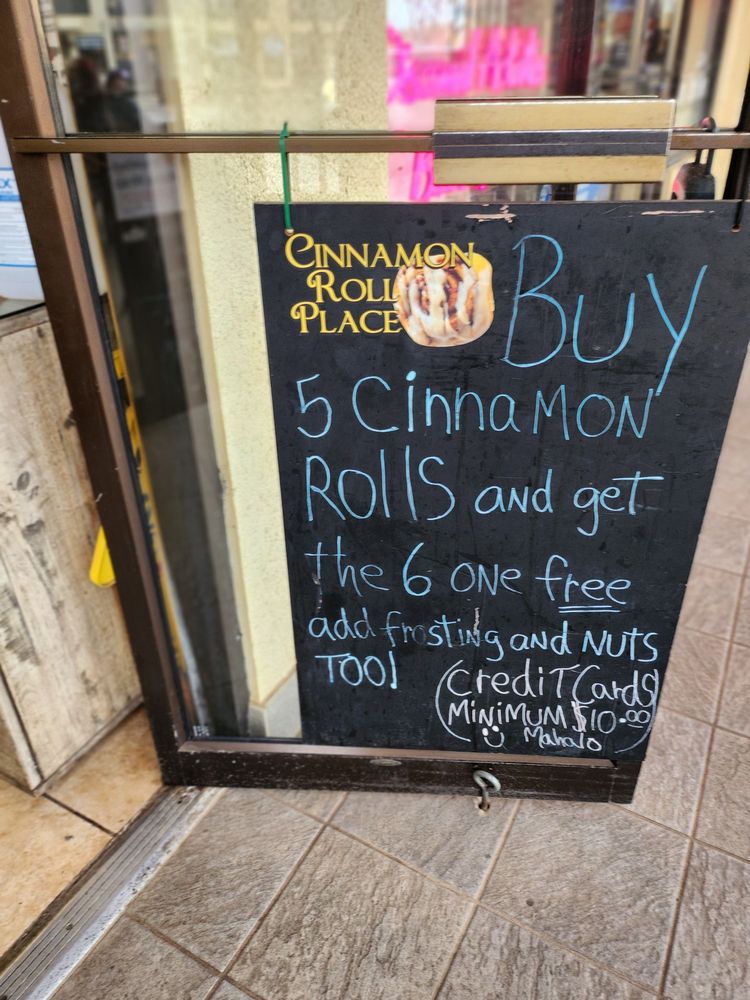 CINNAMON
ROLL
PLACE
Buy
5 CinnaMON
ROllS and get
the 6 ONE free
add frosting and NUTS
TOO!
(CrediT Cards
MiNiMUM $10.00)
Mahalo